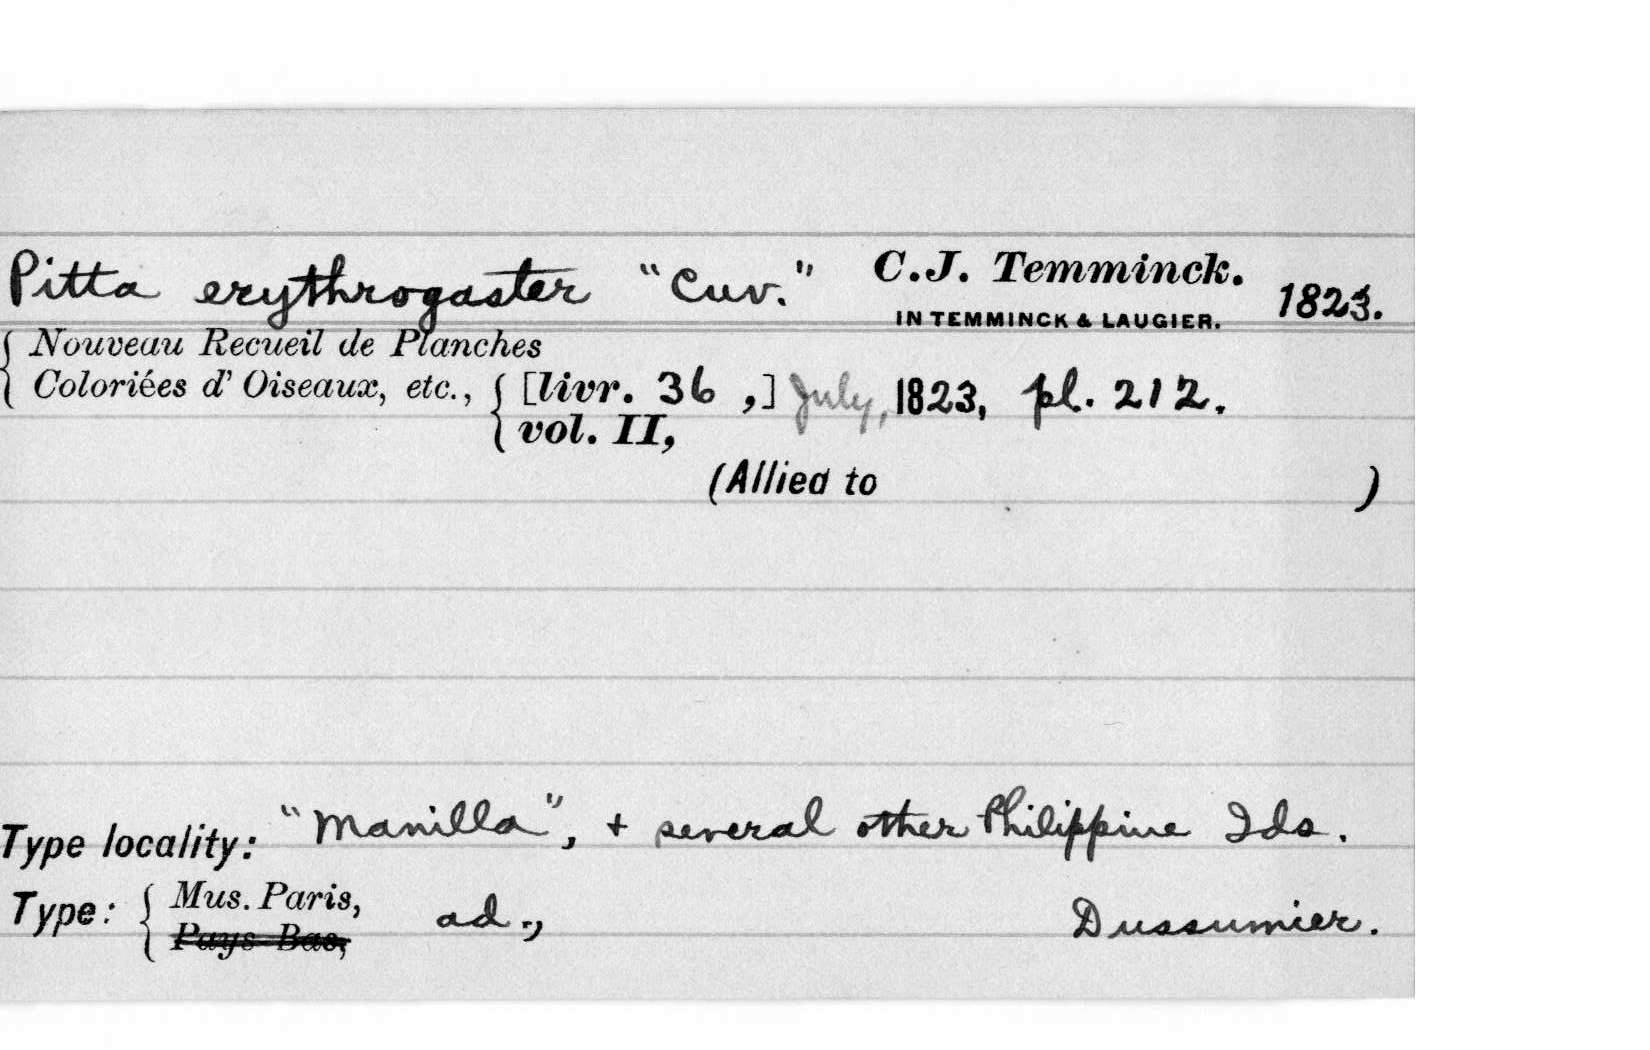 Pitta erythrogaster "Cuv." C.J. Temminck. 1823.
IN TEMMINCK & LAUGIER.
Nouveau Recueil de Planches
Coloriées d'Oiseaux, etc., [livr. 36 ,] July, 1823, pl. 212.
vol. II,
(Allied to )
Type locality: "Manilla", + several other Philippine Ids.
Type: Mus. Paris, ad., Dussumier.
Pays-Bas,